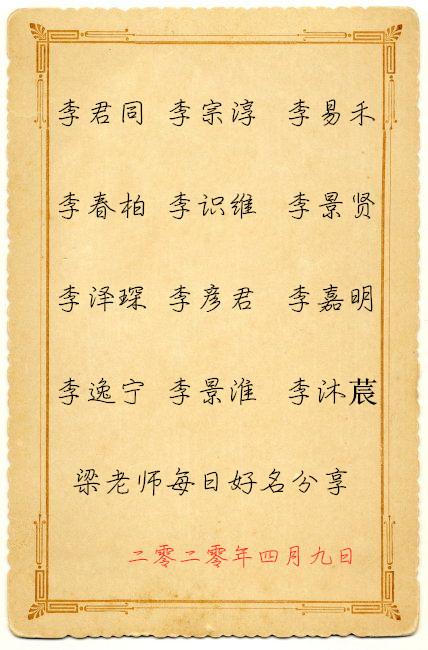 李君同 李宗淳 李易禾
李春柏 李识维 李景贤
李泽琛 李彦君 李嘉明
李逸宁 李景淮 李沐莀
梁老师每日好名分享
二零二零年四月九日